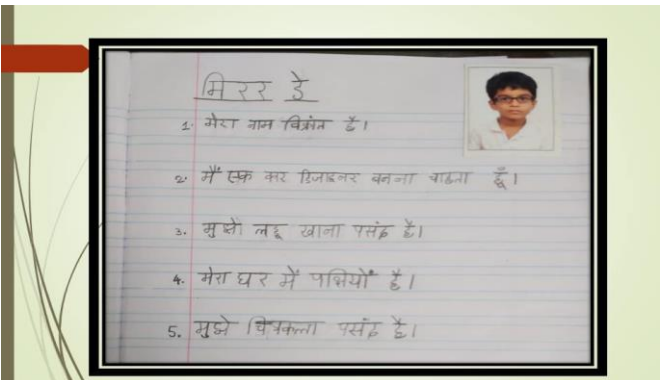 मिरर डे
1. मेरा नाम विक्रांत है।
2. मैं एक कार डिजाइनर बनना चाहता हूँ।
3. मुझे लड्डू खाना पसंद है।
4. मेरा घर में पक्षियों है।
5. मुझे चित्रकला पसंद है।